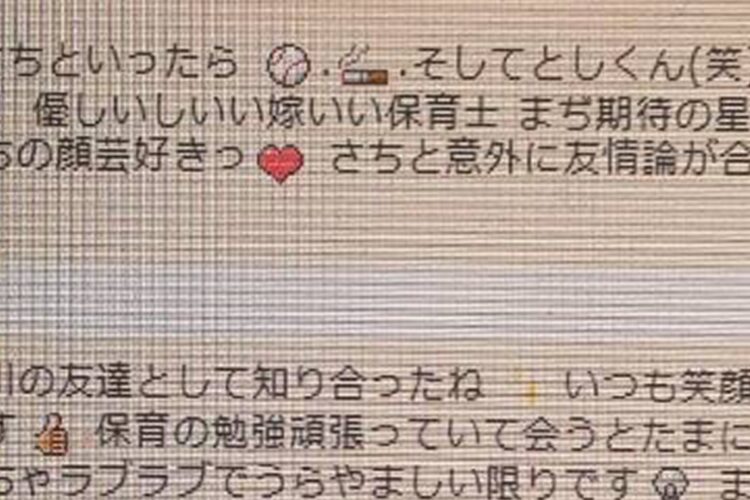 ちといったら ⚾.🚬.そしてとしくん(笑
優しいしいい嫁いい保育士 まぢ期待の星
の顔芸好きっ❤ さちと意外に友情論が合
の友達として知り合ったね ✨ いつも笑顔
👍 保育の勉強頑張っていて会うとたまに
ちゃラブラブでうらやましい限りです😱 ま